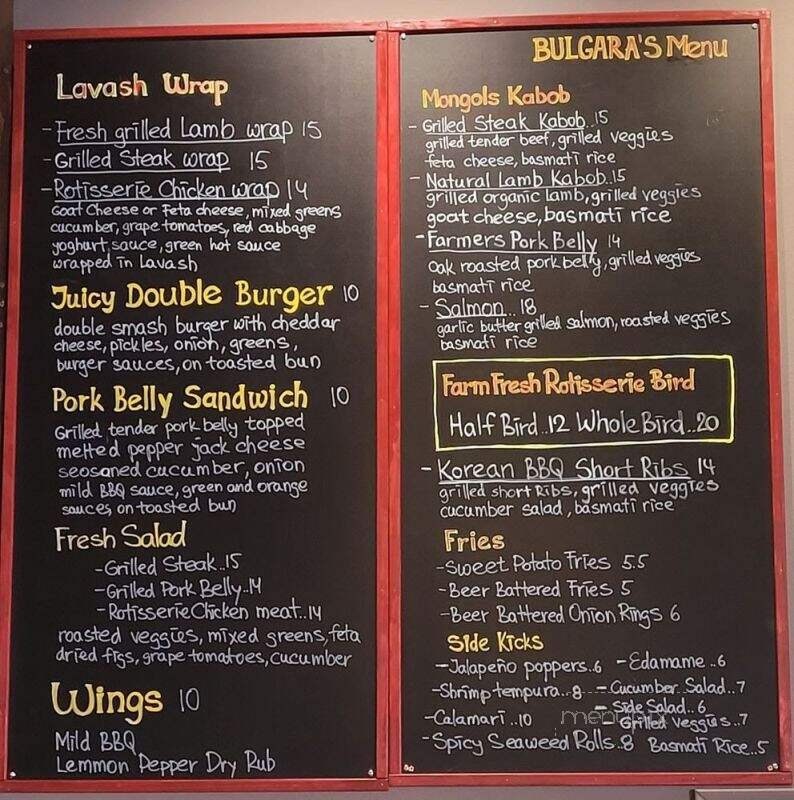 Lavash Wrap
- Fresh grilled Lamb wrap 15
- Grilled Steak wrap 15
- Rotisserie Chicken wrap 14
Goat Cheese or Feta cheese, mixed greens
cucumber, grape tomatoes, red cabbage
yoghurt, sauce, green hot sauce
wrapped in Lavash
Juicy Double Burger 10
double smash burger with cheddar
cheese, pickles, onion, greens,
burger sauces, on toasted bun
Pork Belly Sandwich 10
Grilled tender pork belly topped
melted pepper jack cheese
seosaned cucumber, onion
mild BBQ sauce, green and orange
sauces, on toasted bun
Fresh Salad
- Grilled Steak..15
- Grilled Pork Belly..14
- Rotisserie Chicken meat..14
roasted veggies, mixed greens, feta
dried figs, grape tomatoes, cucumber
Wings 10
Mild BBQ
Lemmon Pepper Dry Rub
BULGARA'S Menu
Mongols Kabob
- Grilled Steak Kabob..15
grilled tender beef, grilled veggies
feta cheese, basmati rice
- Natural Lamb Kabob..15
grilled organic lamb, grilled veggies
goat cheese, basmati rice
- Farmers Pork Belly 14
oak roasted pork belly, grilled veggies
basmati rice
- Salmon.. 18
garlic butter grilled salmon, roasted veggies
basmati rice
Farm Fresh Rotisserie Bird
Half Bird..12 Whole Bird..20
- Korean BBQ Short Ribs 14
grilled short Ribs, grilled veggies
cucumber salad, basmati rice
Fries
- Sweet Potato Fries 5.5
- Beer Battered Fries 5
- Beer Battered Onion Rings 6
Side Kicks
- Jalapeño poppers..6 - Edamame..6
- Shrimp tempura..8 - Cucumber Salad..7
- Side Salad..6
- Calamari..10 - Grilled Veggies..7
- Spicy Seaweed Rolls..8 Basmati Rice..5